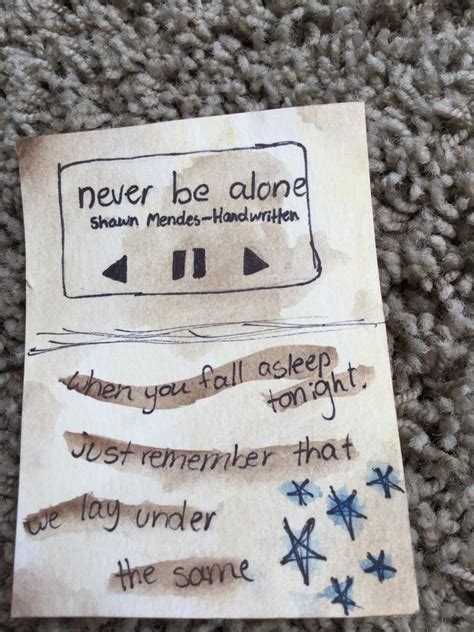 never be alone
Shawn Mendes-Handwritten
when you fall asleep
tonight.
just remember that
we lay under
the same